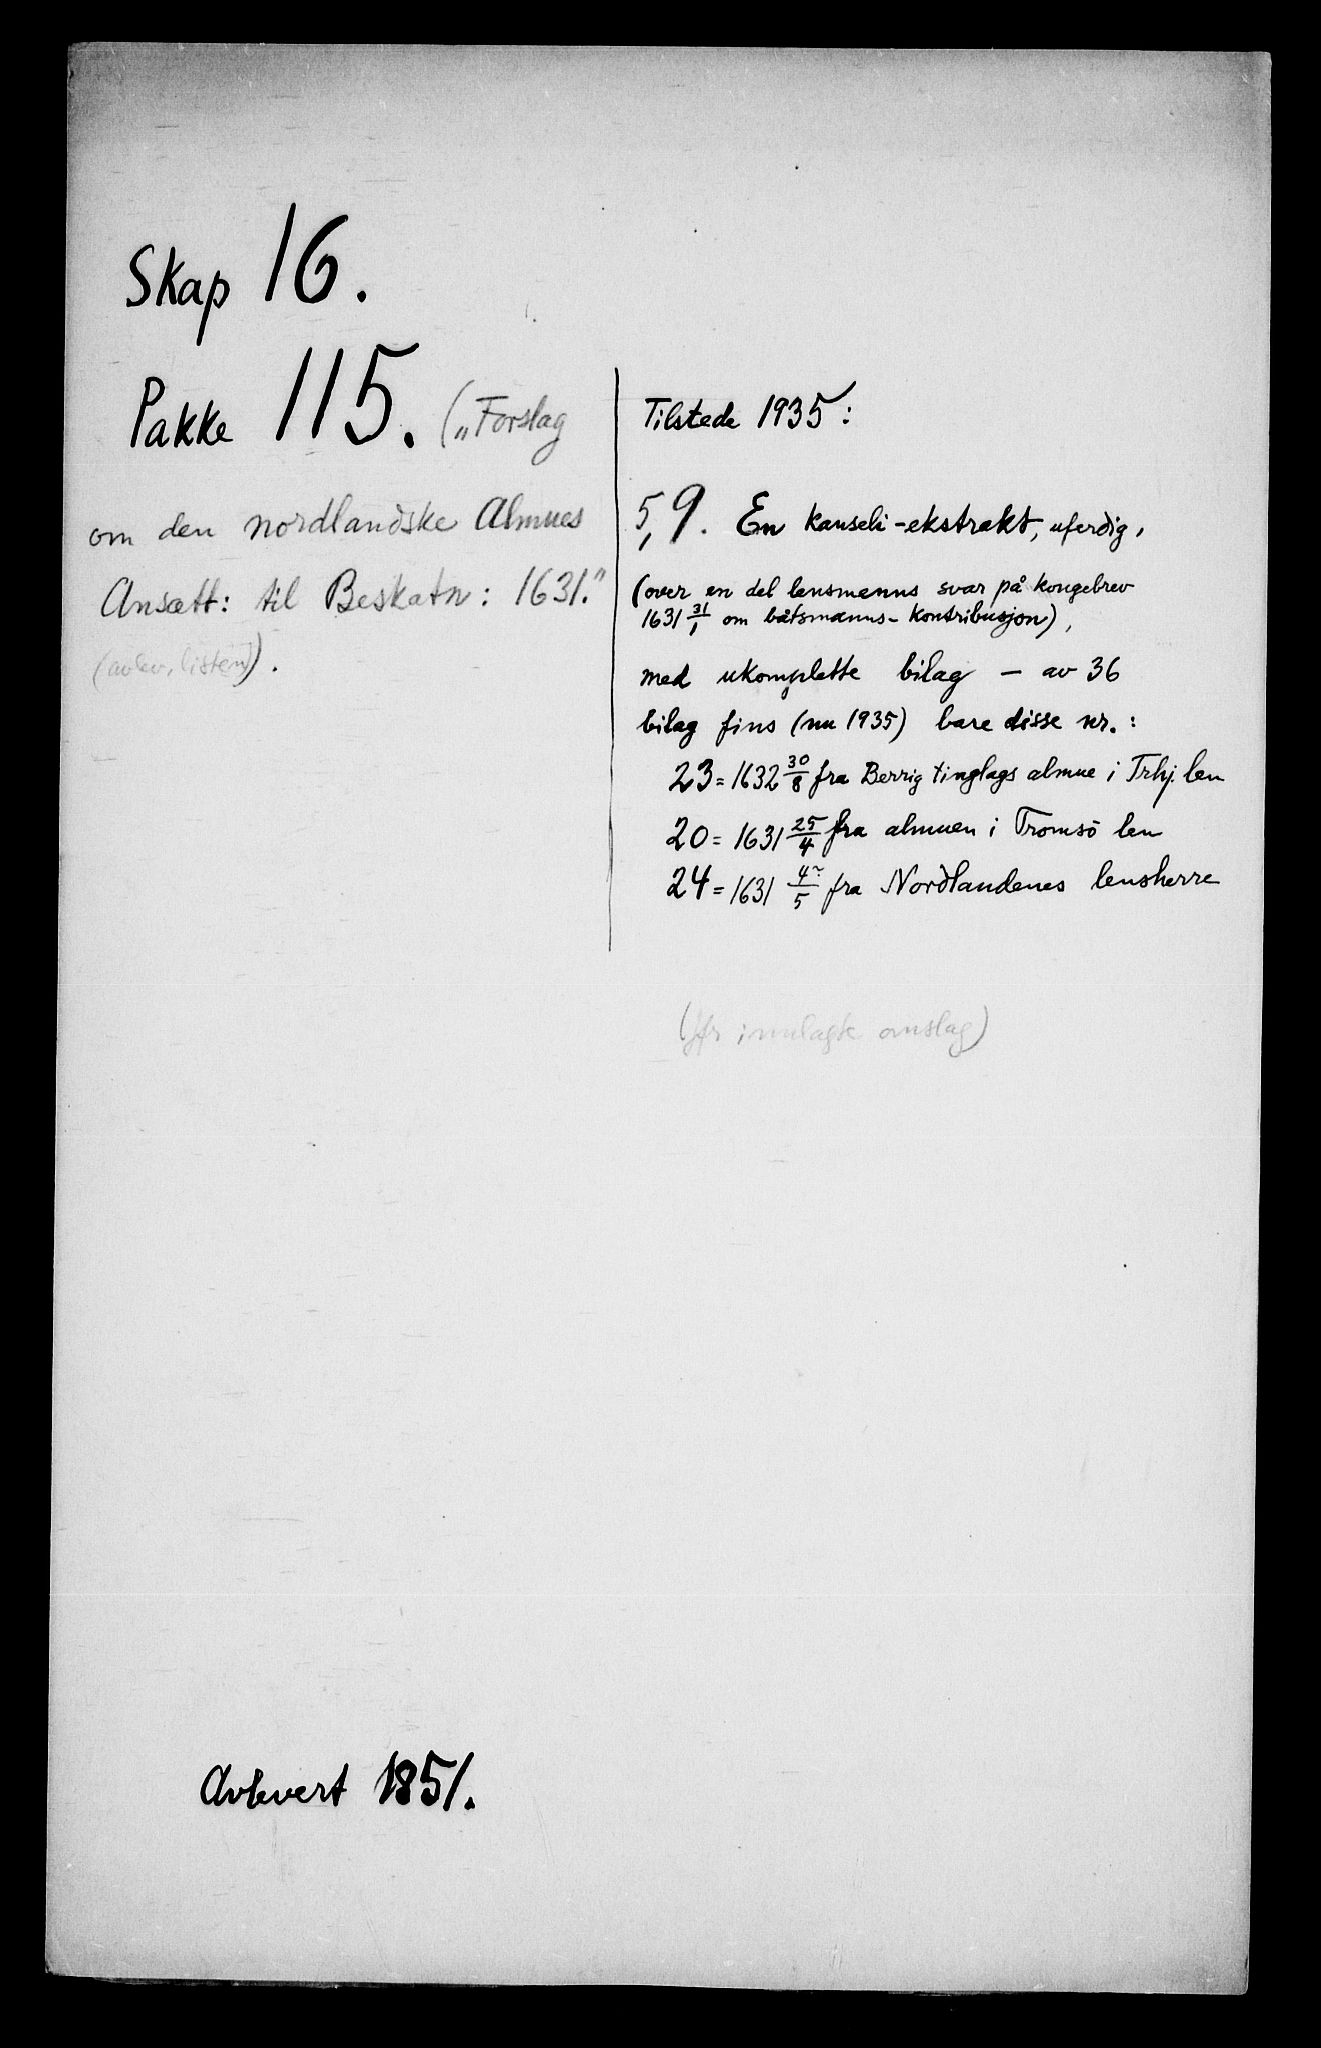 Skap 16.
Pakke 115. („Forslag
om den nordlandske Almues
Ansætt: til Beskatn: 1631."
(avlev. listen).
Tilstede 1935:
5,9. En kanseli-ekstrakt, uferdig,
(over en del lensmenns svar på kongebrev
1631 31/1 om båtsmanns-kontribusjon),
med ukomplette bilag — av 36
bilag fins (nu 1935) bare disse nr.:
23 = 1632 30/8 fra Berrig tinglags almue i Trhj. len
20 = 1631 25/4 fra almuen i Tromsö len
24 = 1631 4?/5 fra Nordlandenes lensherre
(jfr innlagte omslag)
Avlevert 1851.